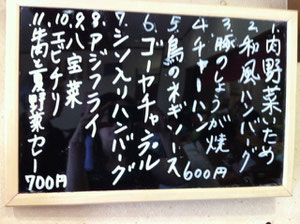 1.肉野菜いため
2.和風ハンバーグ
3.豚のしょうが焼
4.チャーハン
600円
5.鳥のネギソース
6.ゴーヤチャンプル
7.シソ入りハンバーグ
8.アジフライ
9.八宝菜
10.エビチリ
11.牛肉と夏野菜カレー
700円